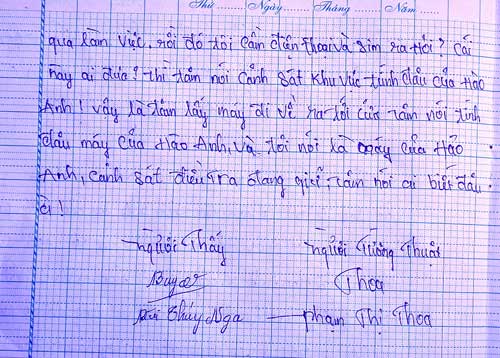 Thứ ........ Ngày ........ Tháng ........ Năm ........
qua làm việc. rồi đó tôi cầm điện thoại và sim ra hỏi? Cái
này ai đưa? thì tâm nói cảnh sát khu vực tính đâu của Hào
Anh! vậy là tâm lấy máy đi về ra tới cửa tâm nói tính
đâu máy của Hào Anh, và tôi nói là máy của Hào
Anh, cảnh sát điều tra đang giữ, tâm nói ai biết đâu
à!
Người Thấy
Người Tường Thuật
Thoa
Bùi Thúy Nga
Phạm Thị Thoa